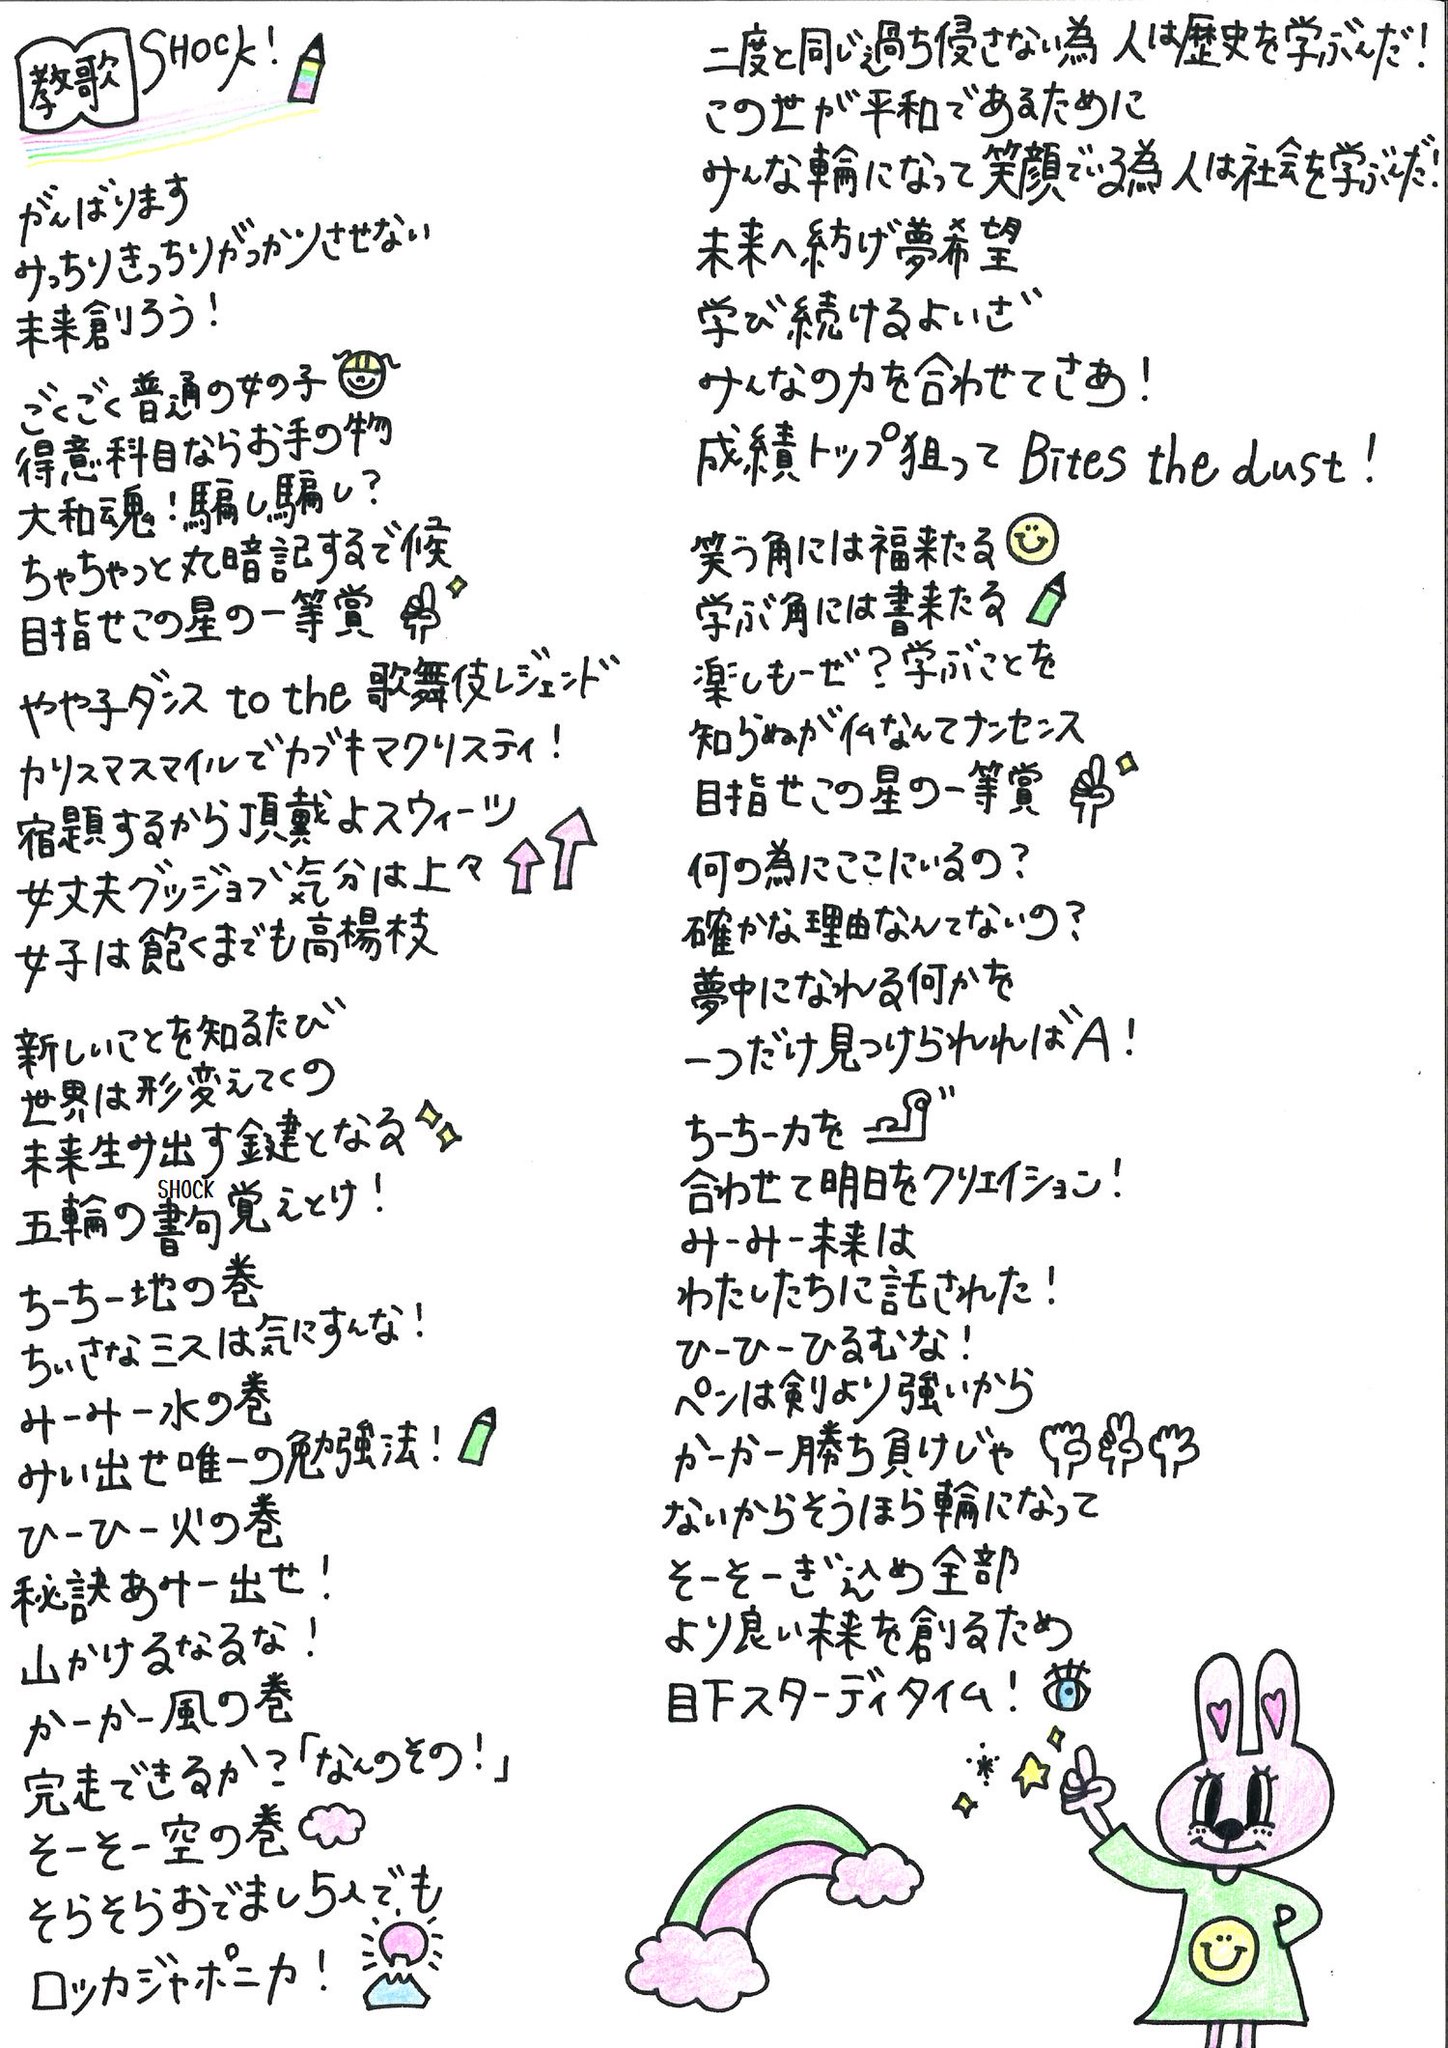 教歌SHOCK!
がんばります
みっちりきっちりがっかりさせない
未来創ろう!
ごくごく普通の女の子
得意科目ならお手の物
大和魂!騙し騙し?
ちゃちゃっと丸暗記するで候
目指せこの星の一等賞
やや子ダンス to the 歌舞伎レジェンド
カリスマスマイルでカブキマクリスティ!
宿題するから頂戴よスウィーツ
女丈夫グッジョブ気分は上々
女子は飽くまでも高楊枝
新しいことを知るたび
世界は形変えてくの
未来生み出す鍵となる
SHOCK
五輪の書句覚えとけ!
ちーちー地の巻
ちいさなミスは気にすんな!
みーみー水の巻
みい出せ唯一の勉強法!
ひーひー火の巻
秘訣あみー出せ!
山かけるなるな!
かーかー風の巻
完走できるか?「なんのその!」
そーそー空の巻
そらそらおでまし5人でも
ロッカジャポニカ!
二度と同じ過ち侵さない為 人は歴史を学ぶんだ!
この世が平和であるために
みんな輪になって笑顔でいる為 人は社会を学ぶんだ!
未来へ紡げ夢希望
学び続けるよいざ
みんなの力を合わせてさあ!
成績トップ狙って Bites the dust!
笑う角には福来たる
学ぶ角には書来たる
楽しもーぜ?学ぶことを
知らぬが仏なんてナンセンス
目指せこの星の一等賞
何の為にここにいるの?
確かな理由なんてないの?
夢中になれる何かを
一つだけ見つけられればA!
ちーちー力を
合わせて明日をクリエイション!
みーみー未来は
わたしたちに託された!
ひーひーひるむな!
ペンは剣より強いから
かーかー勝ち負けじゃ
ないからそうほら輪になって
そーそーぎ込め全部
より良い未来を創るため
目下スターディタイム!